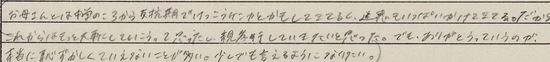 お母さんとは中学のころから反抗期でけっこうけんかとかもしてきてるし、迷惑もいっぱいかけてきてる。だから
これからはもっと大事にしていこうって思ったし、親孝行していきたいと思った。でも、ありがとうっていうのが、
本当に恥ずかしくていえないことが多い。少しでも言えるようになりたい。)